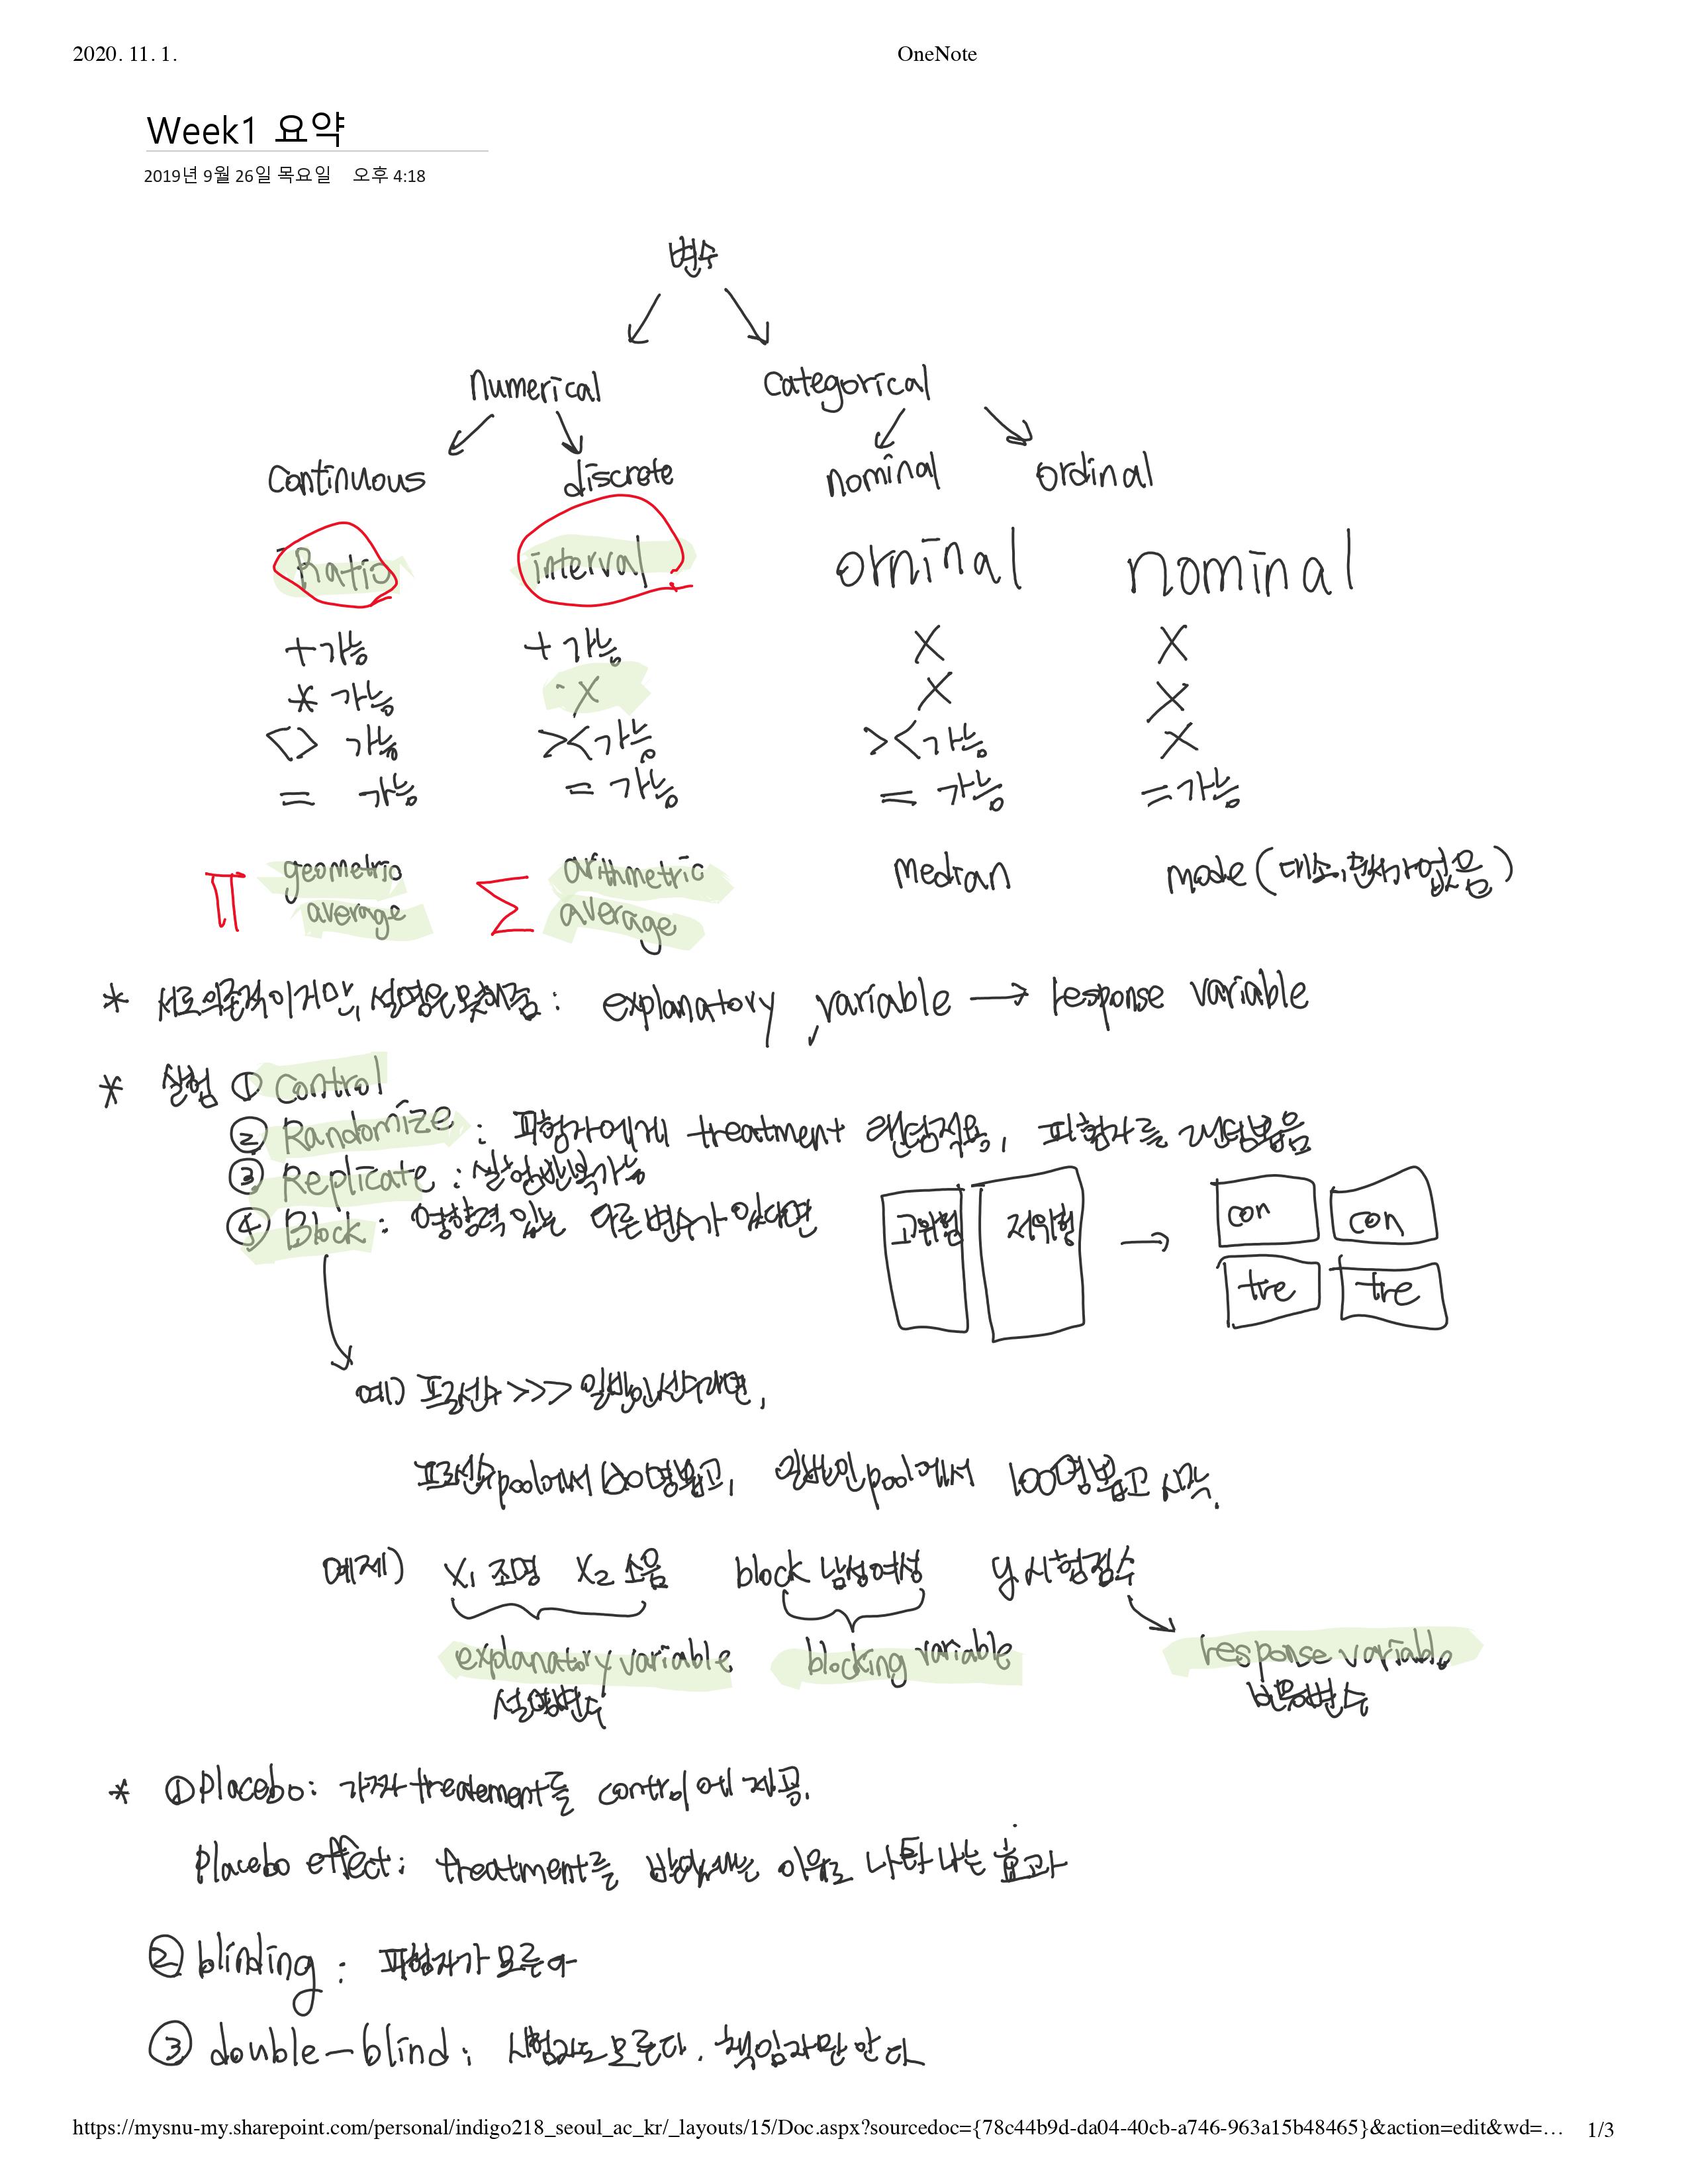 2020. 11. 1.
OneNote
Week1 요약
2019년 9월 26일 목요일 오후 4:18
변수
Numerical Categorical
Continuous discrete nominal ordinal
Ratio interval orninal nominal
+가능 + 가능 X X
* 가능 X X X
<> 가능 ><가능 ><가능 X
= 가능 = 가능 = 가능 =가능
∏ geometric Σ arithmetric median mode (대소, 편차가 없음)
average average
* 서로 의존적이지만, 설명은 못해줌 : explanatory variable → response variable
* 실험 ① Control
② Randomize : 피험자에게 treatment 랜덤적용, 피험자를 랜덤뽑음
③ Replicate : 실험반복가능
④ Block : 영향력 있는 다른 변수가 있다면
고위험 저위험 → con con
tre tre
예) 프로선수 >>> 일반인선수라면,
프로선수pool에서 100명뽑고, 일반인pool에서 100명뽑고 시작.
예제) X₁ 조명 X₂ 소음 block 남성여성 y 시험점수
explanatory variable blocking variable response variable
설명변수 반응변수
* ① Placebo : 가짜 treatement를 control에 제공.
Placebo effect : treatment를 받았다는 이유로 나타나는 효과
② blinding : 피험자가 모른다
③ double-blind : 시험자도 모른다. 책임자만 안다
https://mysnu-my.sharepoint.com/personal/indigo218_seoul_ac_kr/_layouts/15/Doc.aspx?sourcedoc={78c44b9d-da04-40cb-a746-963a15b48465}&action=edit&wd=… 1/3